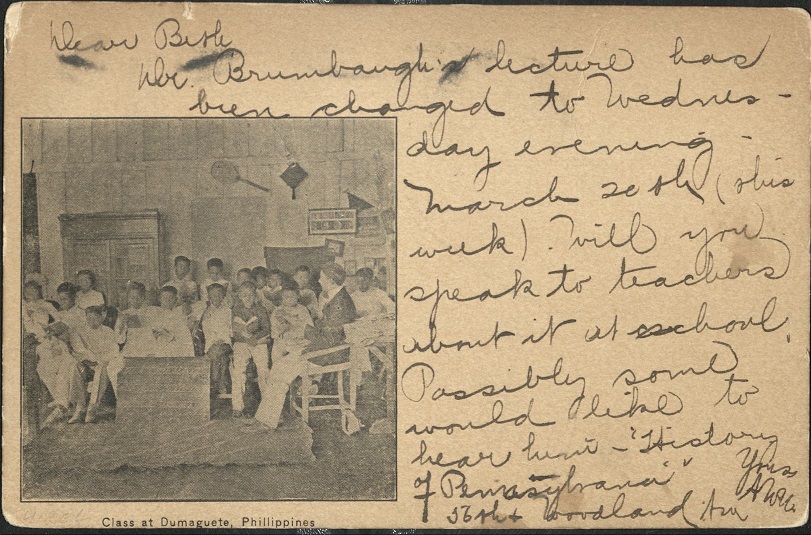 Dear Beth
Dr. Brumbaugh's lecture has
been changed to Wednes-
day evening -
March 20th (this
week). Will you
speak to teachers
about it at school.
Possibly some
would like to
hear him - "History
of Pennsylvania"
Yours
56th & Woodland Ave
Class at Dumaguete, Phillippines